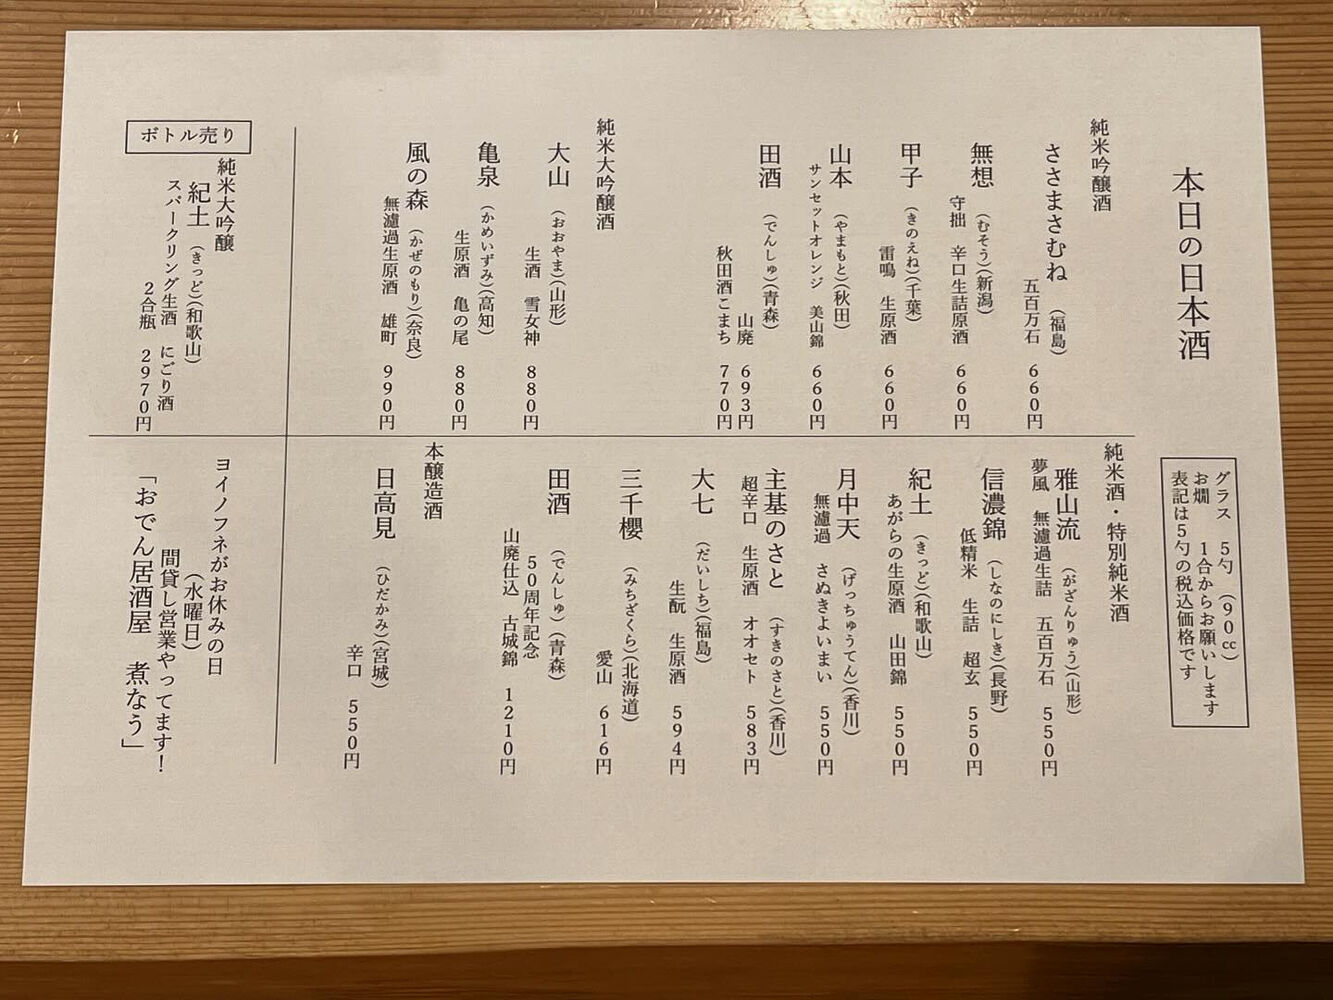 本日の日本酒
グラス　５勺　（９０㏄）
お燗　　１合からお願いします
表記は５勺の税込価格です
純米吟醸酒
ささまさむね　（福島）
五百万石　６６０円
無想　（むそう）（新潟）
守拙　辛口生詰原酒　６６０円
甲子　（きのえね）（千葉）
雷鳴　生原酒　６６０円
山本　（やまもと）（秋田）
サンセットオレンジ　美山錦　６６０円
田酒　（でんしゅ）（青森）
山廃　６９３円
秋田酒こまち　７７０円
純米大吟醸酒
大山　（おおやま）（山形）
生酒　雪女神　８８０円
亀泉　（かめいずみ）（高知）
生原酒　亀の尾　８８０円
風の森　（かぜのもり）（奈良）
無濾過生原酒　雄町　９９０円
純米酒・特別純米酒
雅山流　（がざんりゅう）（山形）
夢風　無濾過生詰　五百万石　５５０円
信濃錦　（しなのにしき）（長野）
低精米　生詰　超玄　５５０円
紀土　（きっど）（和歌山）
あがらの生原酒　山田錦　５５０円
月中天　（げっちゅうてん）（香川）
無濾過　さぬきよいまい　５５０円
主基のさと　（すきのさと）（香川）
超辛口　生原酒　オオセト　５８３円
大七　（だいしち）（福島）
生酛　生原酒　５９４円
三千櫻　（みちざくら）（北海道）
愛山　６１６円
田酒　（でんしゅ）（青森）
５０周年記念
山廃仕込　古城錦　１２１０円
本醸造酒
日高見　（ひだかみ）（宮城）
辛口　５５０円
ボトル売り
純米大吟醸
紀土　（きっど）（和歌山）
スパークリング生酒　にごり酒
２合瓶　２９７０円
ヨイノフネがお休みの日
（水曜日）
間貸し営業やってます！
「おでん居酒屋　煮なう」